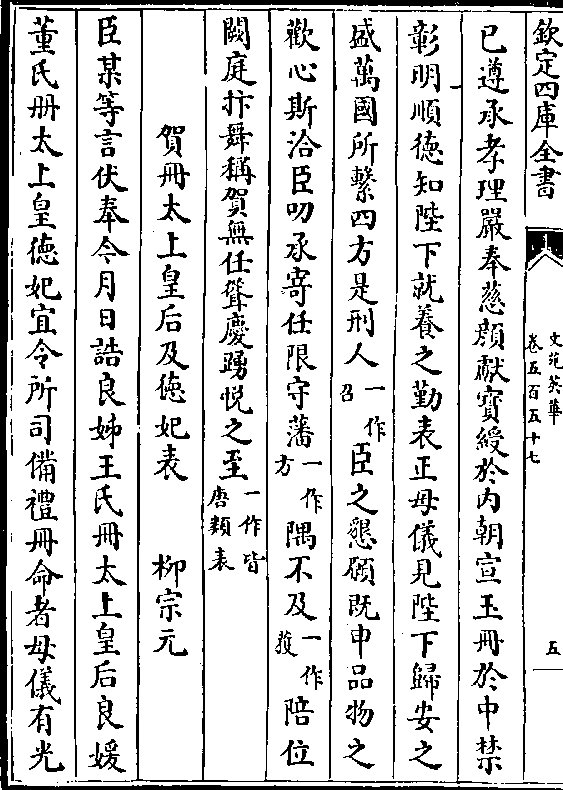 欽定四庫全書
文苑英華
卷五百五十七
五
已遵承孝理嚴奉慈顔獻寶綬於内朝宣玉冊於中禁
彰明順徳知陛下就養之勤表正母儀見陛下歸安之
盛萬國所繫四方是刑人一作召臣之懇願既申品物之
歡心斯洽臣叨承寄任限守藩一作方隅不及一作獲陪位
闕庭抃舞稱賀無任聳慶踴悦之至一作皆唐類表
賀冊太上皇后及徳妃表 柳宗元
臣某等言伏奉今月日誥良娣王氏冊太上皇后良媛
董氏冊太上皇徳妃宜令所司備禮冊命者母儀有光